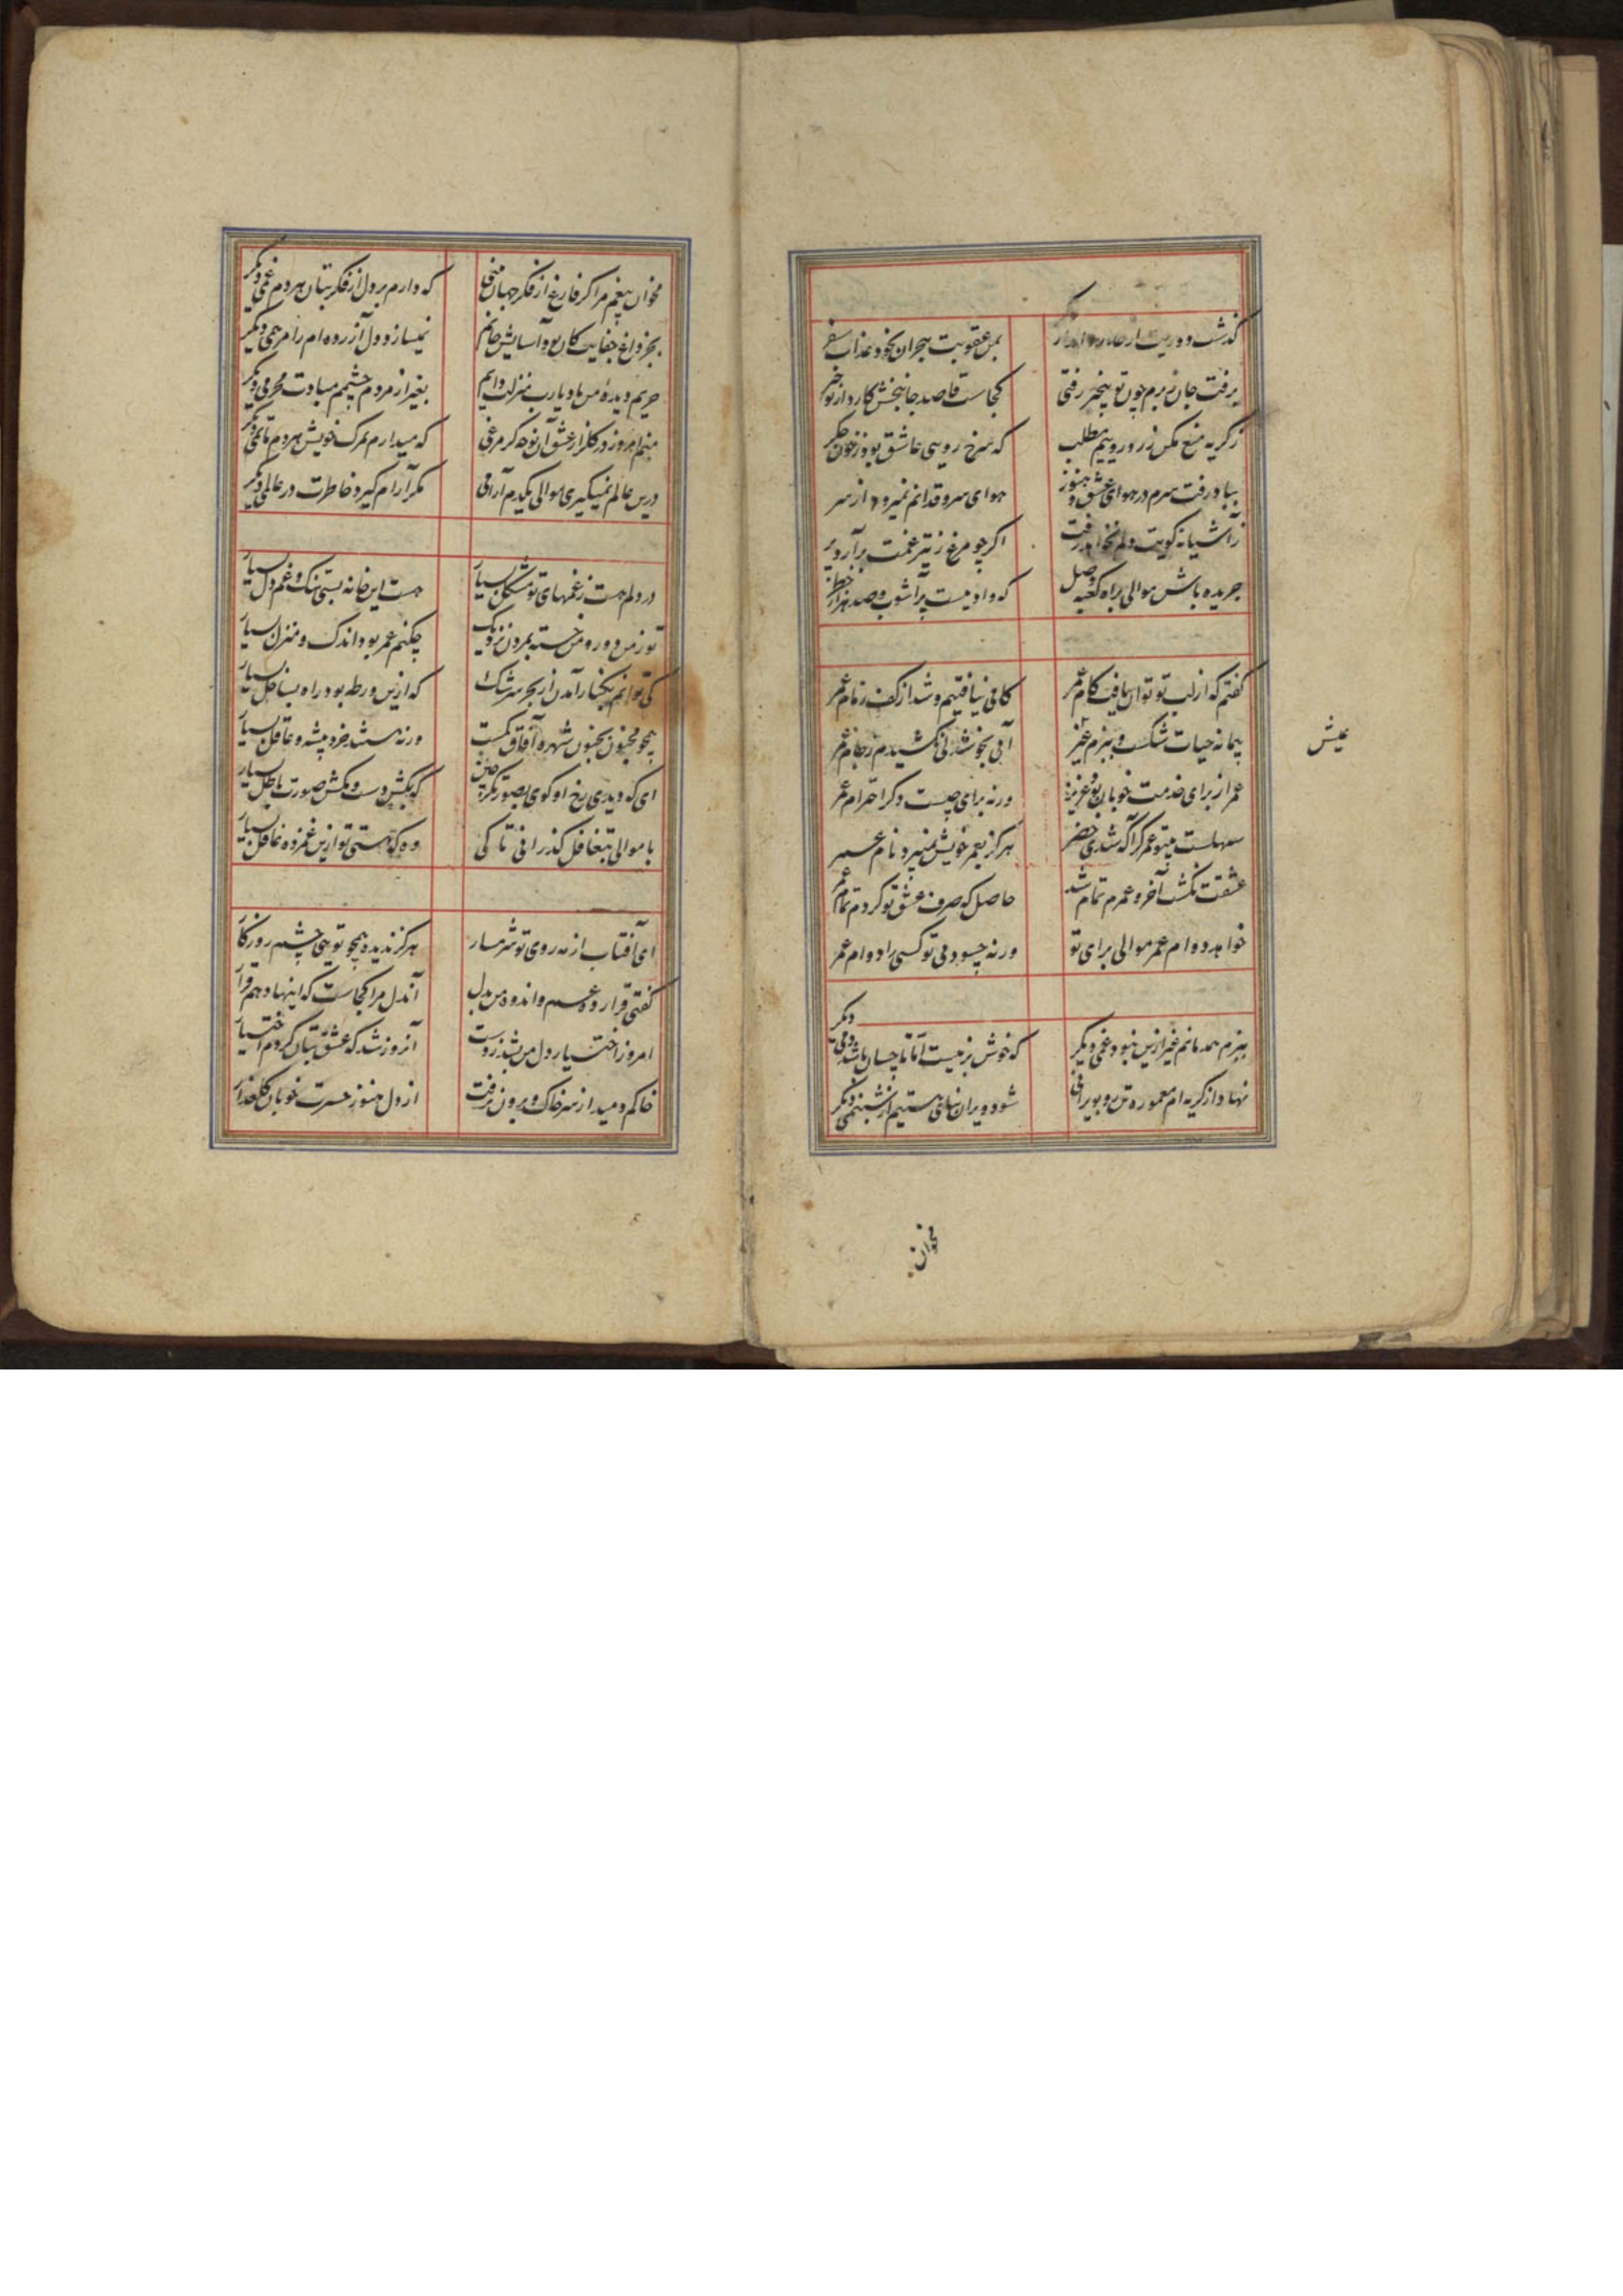 گذشت دوریت از حد
بمن عقوبت هجران نمود عذاب سفر
برفت جان ز برم چون تو بیخبر رفتی
کجاست قاصد جانبخش کارد از تو خبر
ز گریه منع مکن زردروییم مطلب
که سرخ رویی عاشق بود ز خون جگر
بباد رفت سرم در هوای عشق و هنوز
هوای سرو قدانم نمیرود از سر
ز آشیانه کویت دلم نخواهد رفت
اگر چو مرغ ز تیر غمت برآرد پر
جریده باش موالی براه کعبه وصل
که وادیست پرآشوب و صد هزار خطر
گفتم که از لب تو توان یافت کام عمر
کامی نیافتیم و شد از کف زمام عمر
پیمانه حیات شکست و ببزم
آبی بخوشدلی نکشیدم ز جام عمر
عمر از برای خدمت خوبان بود عزیز
ورنه برای چیست دگر احترام عمر
سهلست بیتو عمر گر آگه شدی خضر
هرگز بعمر خویش نمیبرد نام عمر
عشقت نکشت آخر و عمرم تمام شد
حاصل که صرف عشق تو کردم تمام عمر
خواهد دوام عمر موالی برای تو
ورنه چه سود بی تو کسی را دوام عمر
ببزم همدمانم غیر ازین نبود غمی دیگر
که خوش بزمیست اما تا چسان باشد دمی دیگر
نهاد از گریه ام معموره تن رو بویرانی
شود ویران بنای هستیم از شبنمی دیگر
عیش
مخوان
مخوان بیغم مرا گر فارغ از فکر جهان
که دارم بر دل از فکر بتان هر دم غمی دیگر
بجز داغ جفایت کان بود آسایش جانم
نمیسازد دل آزرده ام را مرهمی دیگر
حریم دیده من باد یارب منزلت دایم
بغیر از مردم چشمم مبادت محرمی دیگر
منم امروز در گلزار عشق آن نوحه گر مرغی
که میدارم بمرگ خویش هر دم ماتمی دیگر
درین عالم نمیگیری موالی یکدم آرامی
مگر آرام گیرد خاطرت در عالمی دیگر
در دلم هست ز غمهای تو مشکل بسیار
هست این خانه بسی تنگ و غم دل بسیار
تو ز من دور و من خسته بمردن نزدیک
چکنم عمر بود اندک و منزل بسیار
کی توانم بکنار آمدن از بحر سرشک
که ازین ورطه بود راه بساحل بسیار
همچو مجنون بجنون شهره آفاق کمست
ورنه هستند خردپیشه و عاقل بسیار
ای که دیدی رخ او کوی بصورتگر چین
که بکش دست و مکش صورت باطل بسیار
با موالی بتغافل گذرانی تا کی
وه که هستی تو ازین غمزده غافل بسیار
ای آفتاب از مه روی تو شرمسار
هرگز ندیده همچو تویی چشم روزگار
گفتی قرار ده غم و اندوه من بدل
آندل مرا کجاست که اینها دهم قرار
امروز اختیار دل من بشد ز دست
آنروز شد که عشق بتان کردم اختیار
خاکم دمید از سر خاک و برون نرفت
از دل هنوز حسرت خوبان گلعذار